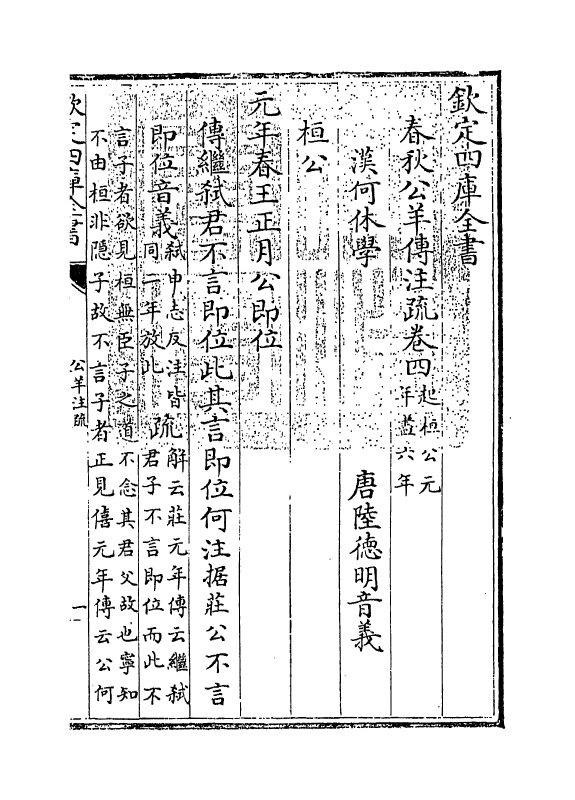 欽定四庫全書
春秋公羊傳注疏卷四起桓公元
年盡六年
漢何休學　唐陸德明音義
桓公
元年春王正月公即位
傳繼弑君不言即位此其言即位何注据莊公不言
即位音義弑申志反注皆
同二年放此疏解云莊元年傳云繼弑
君子不言即位而此不
言子者欲見桓無臣子之道不念其君父故也寧知
不由桓非隠子故不言子者正見僖元年傳云公何
欽定四庫全書
公羊注疏
一